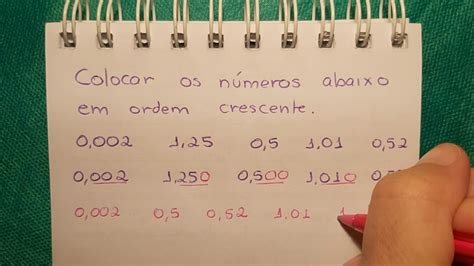 Colocar os números abaixo
em ordem crescente.
0,002 1,25 0,5 1,01 0,52
0,002 1,250 0,500 1,010
0,002 0,5 0,52 1,01